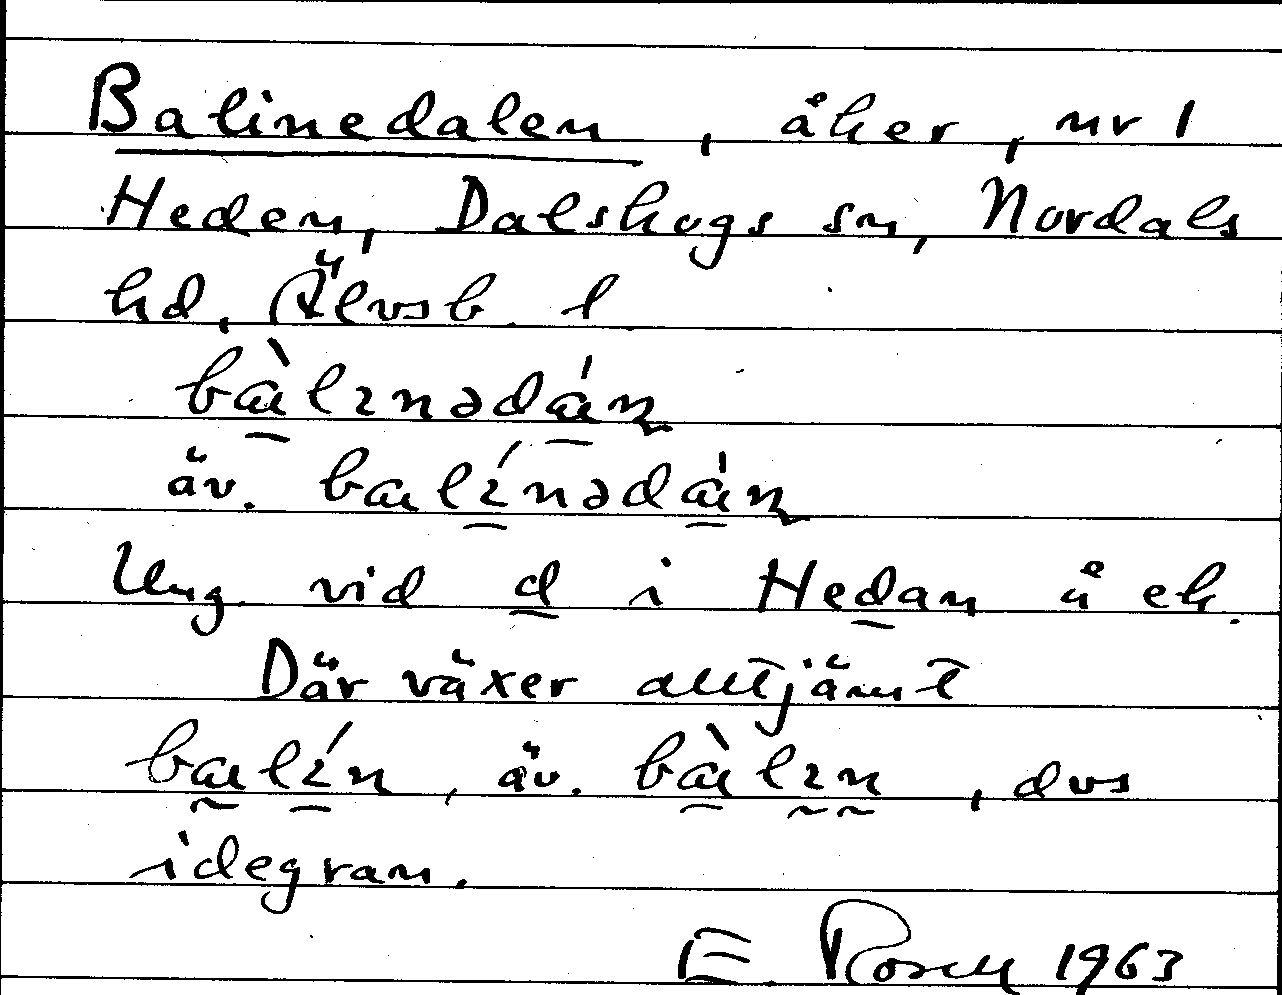 Balinedalen, åker, nr 1
Heden, Dalskogs sn, Nordals
hd, Älvsb. l.
bàlɪnədán
äv. balɪ́nədàn
Ung. vid d i Hedan å ek.
Där växer alltjämt
balɪ́n, äv. bàlɪn, dvs
idegran.
E. Rosell 1963